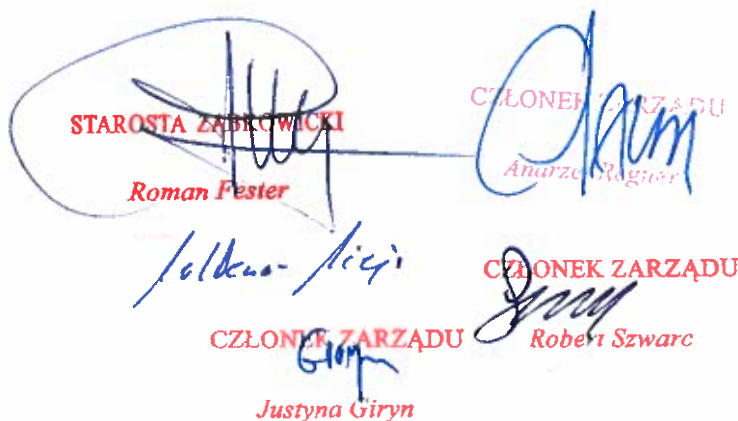 STAROSTA ZĄBKOWICKI
Roman Fester
CZŁONEK ZARZĄDU
Andrzej Regner
CZŁONEK ZARZĄDU
Robert Szwarc
CZŁONEK ZARZĄDU
Giryn
Justyna Giryn